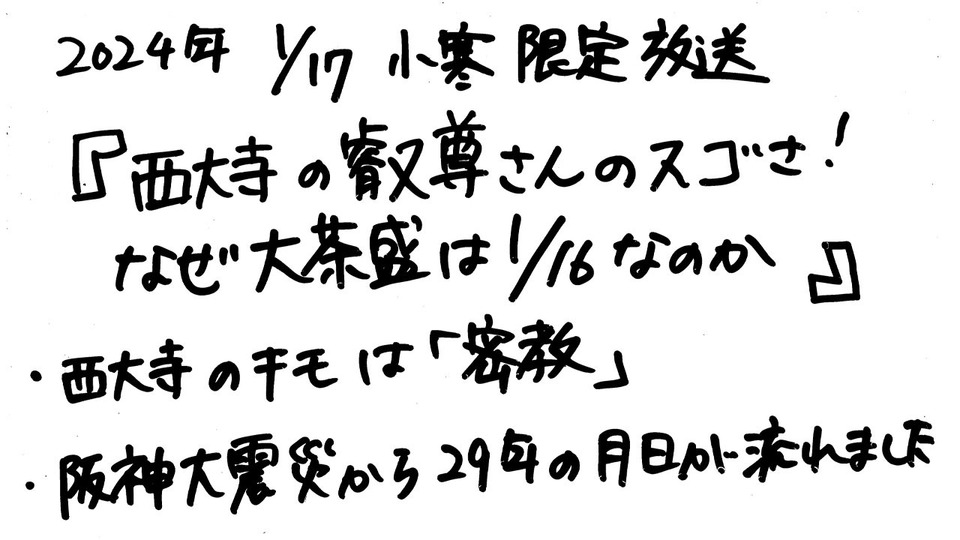 2024年 1/17 小寒 限定放送
『西大寺の叡尊さんのスゴさ!
なぜ大茶盛は1/16なのか』
・西大寺のキモは「密教」
・阪神大震災から29年の月日が流れました